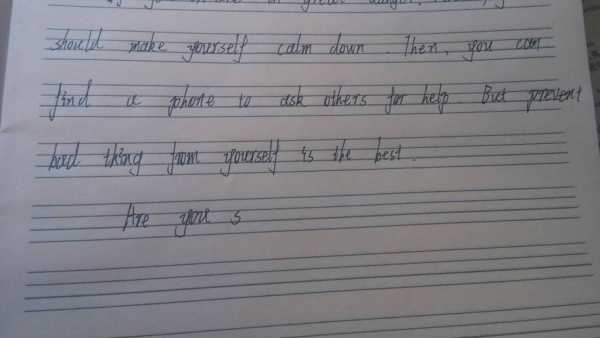 in great danger.
should make yourself calm down. Then, you can
find a phone to ask others for help But prevent
bad thing from yourself is the best.
Are you s